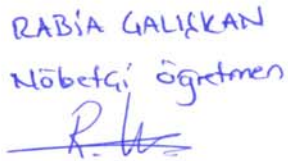 RABİA ÇALIŞKAN
Nöbetçi öğretmen